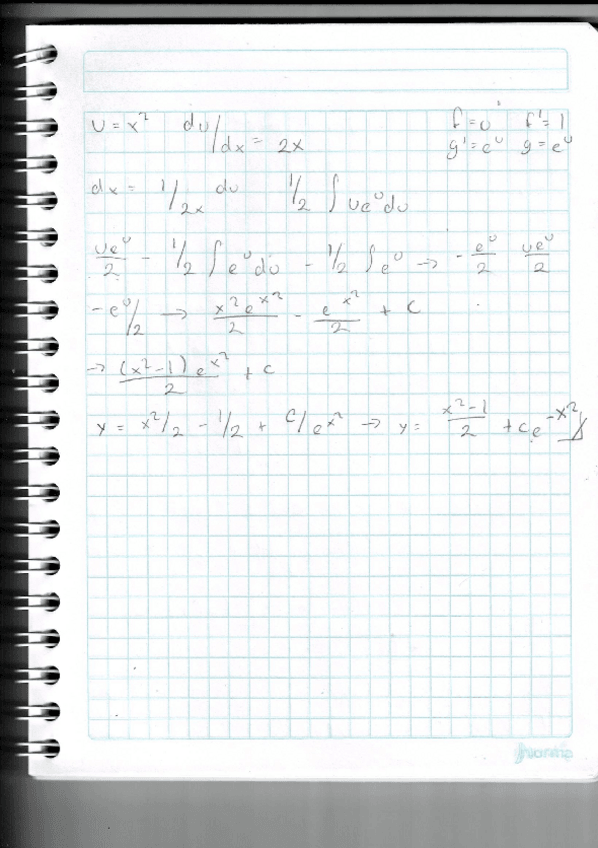 u = x² du/dx = 2x f = u f' = 1
g' = e^u g = e^u
dx = 1/2x du 1/2 ∫ ue^u du
ue^u/2 - 1/2 ∫ e^u du - 1/2 ∫ e^u → - e^u/2 ue^u/2
- e^u/2 → x²e^x²/2 - e^x²/2 + C
→ (x²-1) e^x²/2 + C
y = x²/2 - 1/2 + C/e^x² → y = x²-1/2 + Ce^-x²//